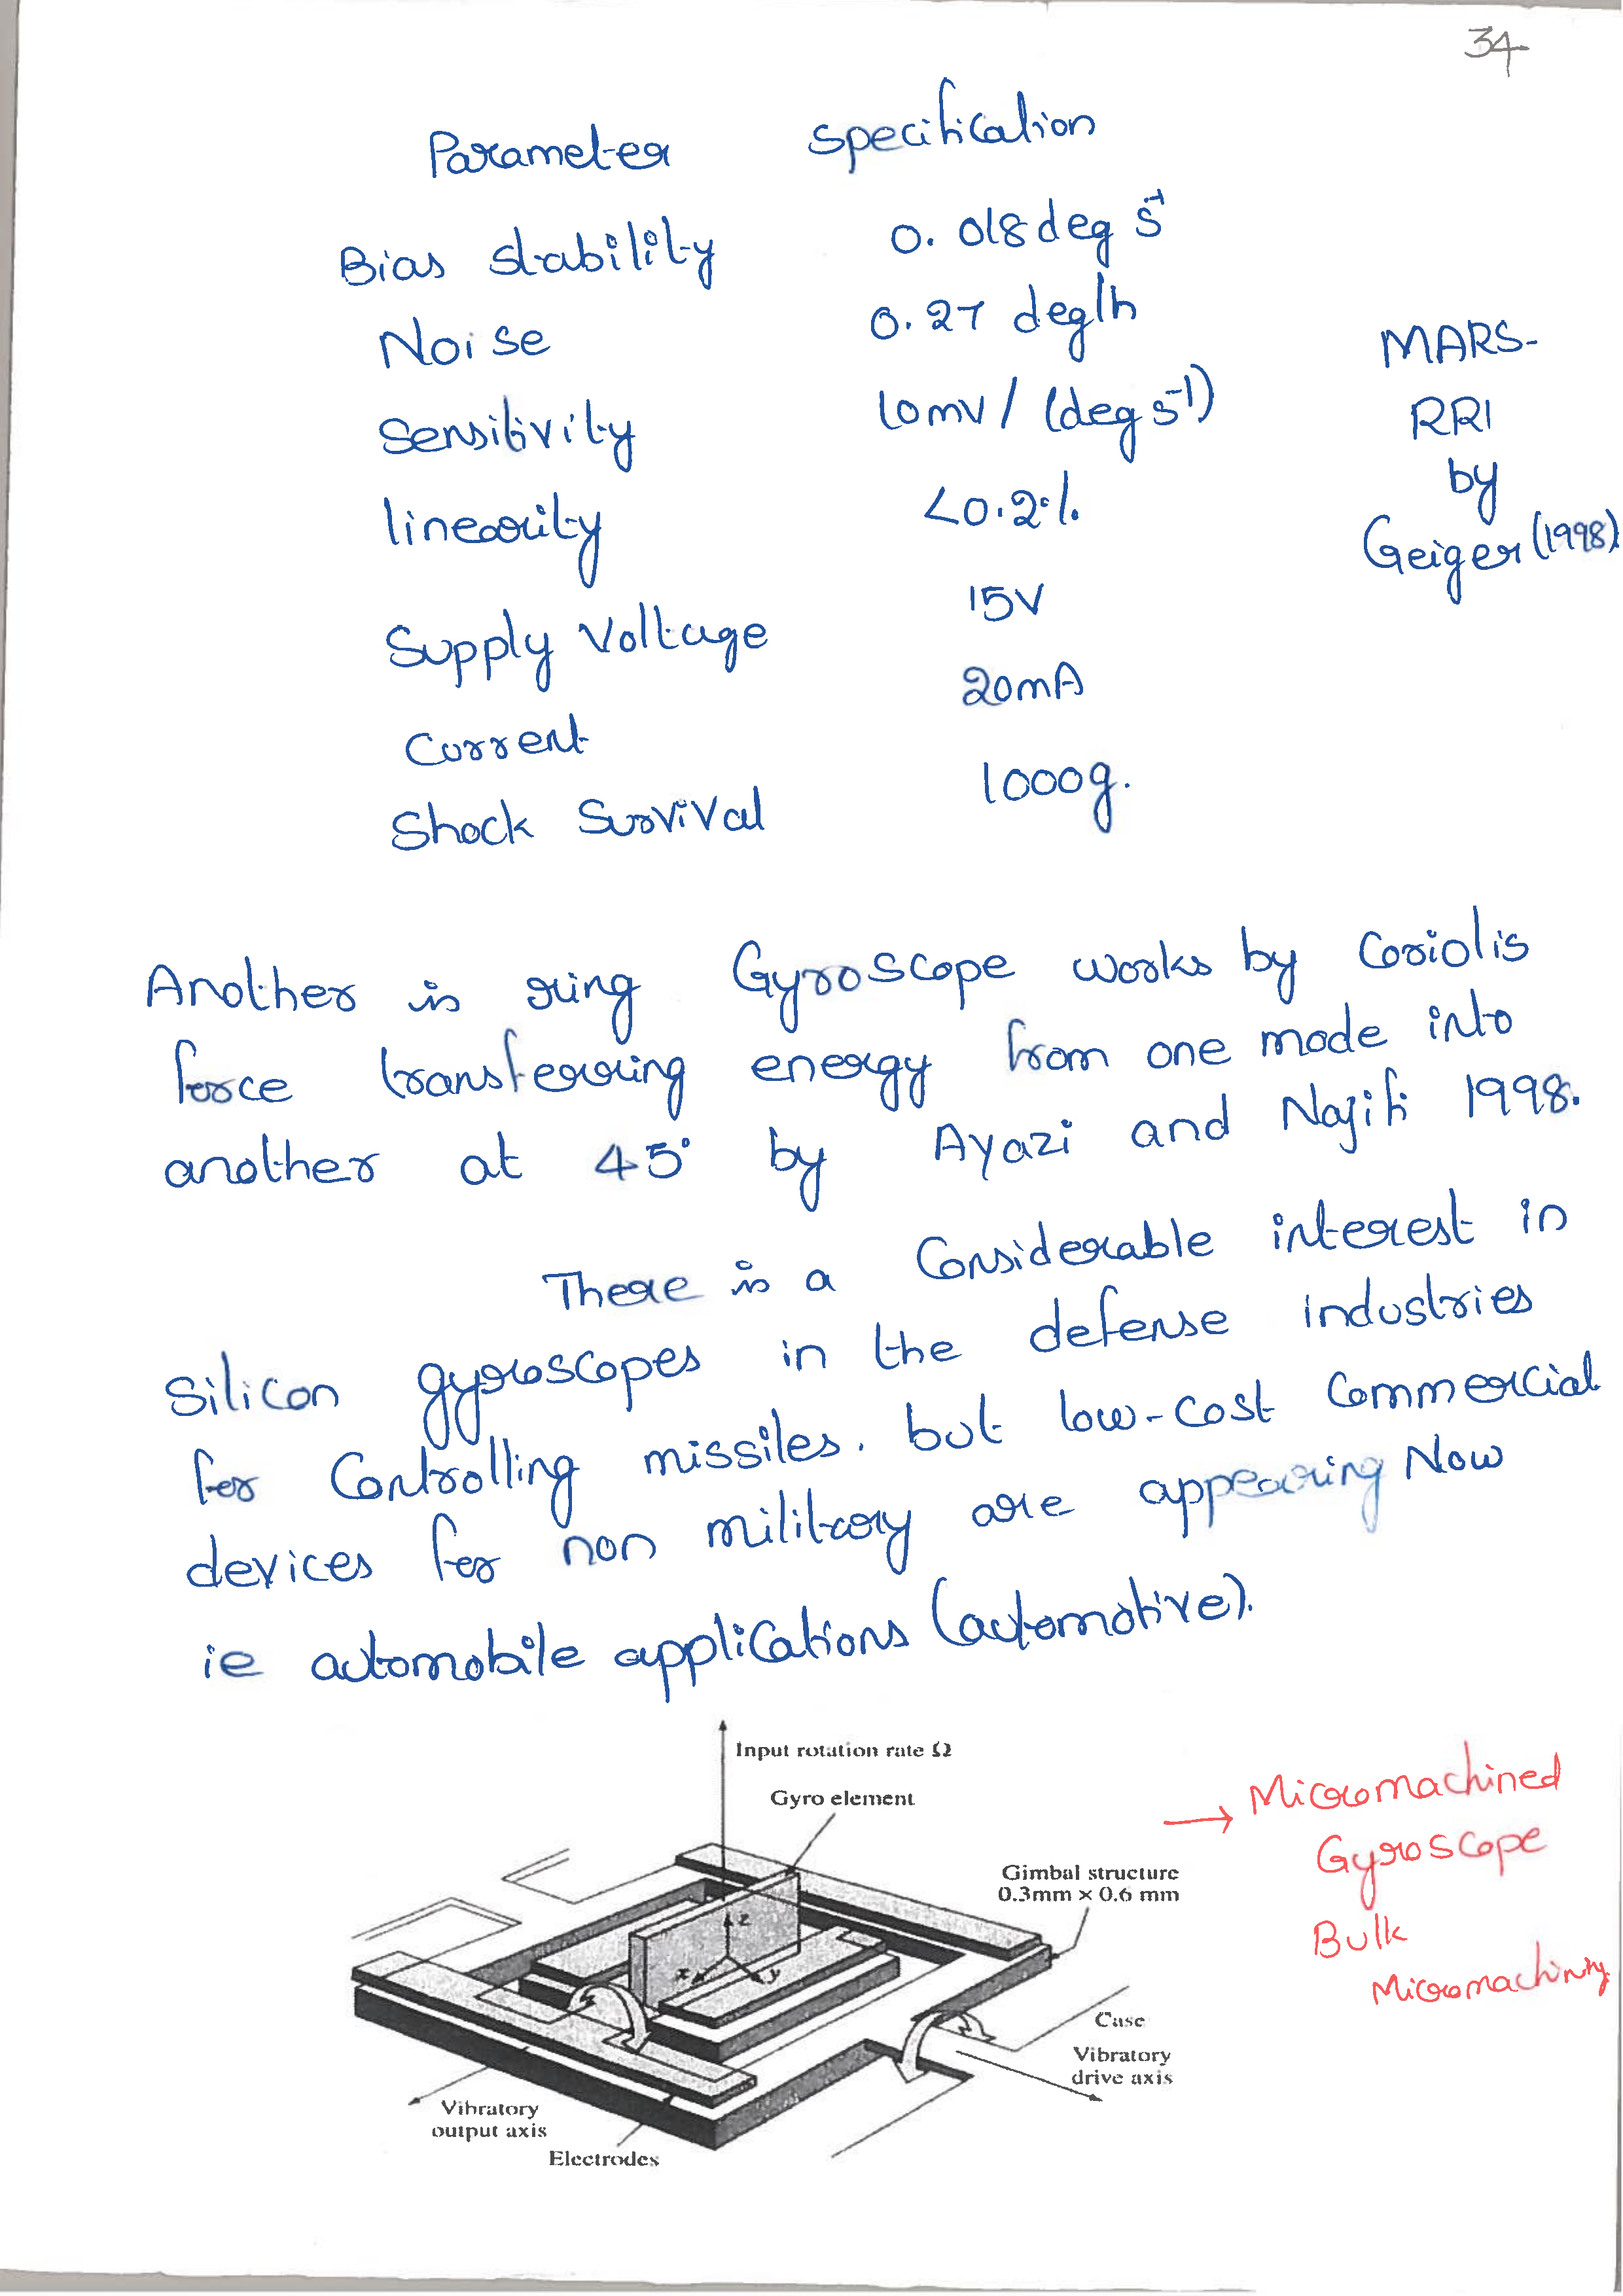 34
Parameter specification
Bias stability 0.018 deg s⁻¹
Noise 0.27 deg/h
Sensitivity 10mV / (deg s⁻¹)
linearity <0.2%
Supply Voltage 15V
Current 20mA
Shock Survival 1000g.
MARS-
RRI
by
Geiger (1998)
Another is ring Gyroscope works by Coriolis
force transferring energy from one mode into
another at 45° by Ayazi and Najifi 1998.
There is a Considerable interest in
Silicon gyroscopes in the defense industries
for Controlling missiles. but low-cost Commercial
devices for non military are appearing Now
ie automobile applications (automotive).
Input rotation rate Ω
Gyro element
Gimbal structure
0.3mm × 0.6 mm
z
x
y
Case
Vibratory
drive axis
Vibratory
output axis
Electrodes
→ Micromachined
Gyroscope
Bulk
Micromachining